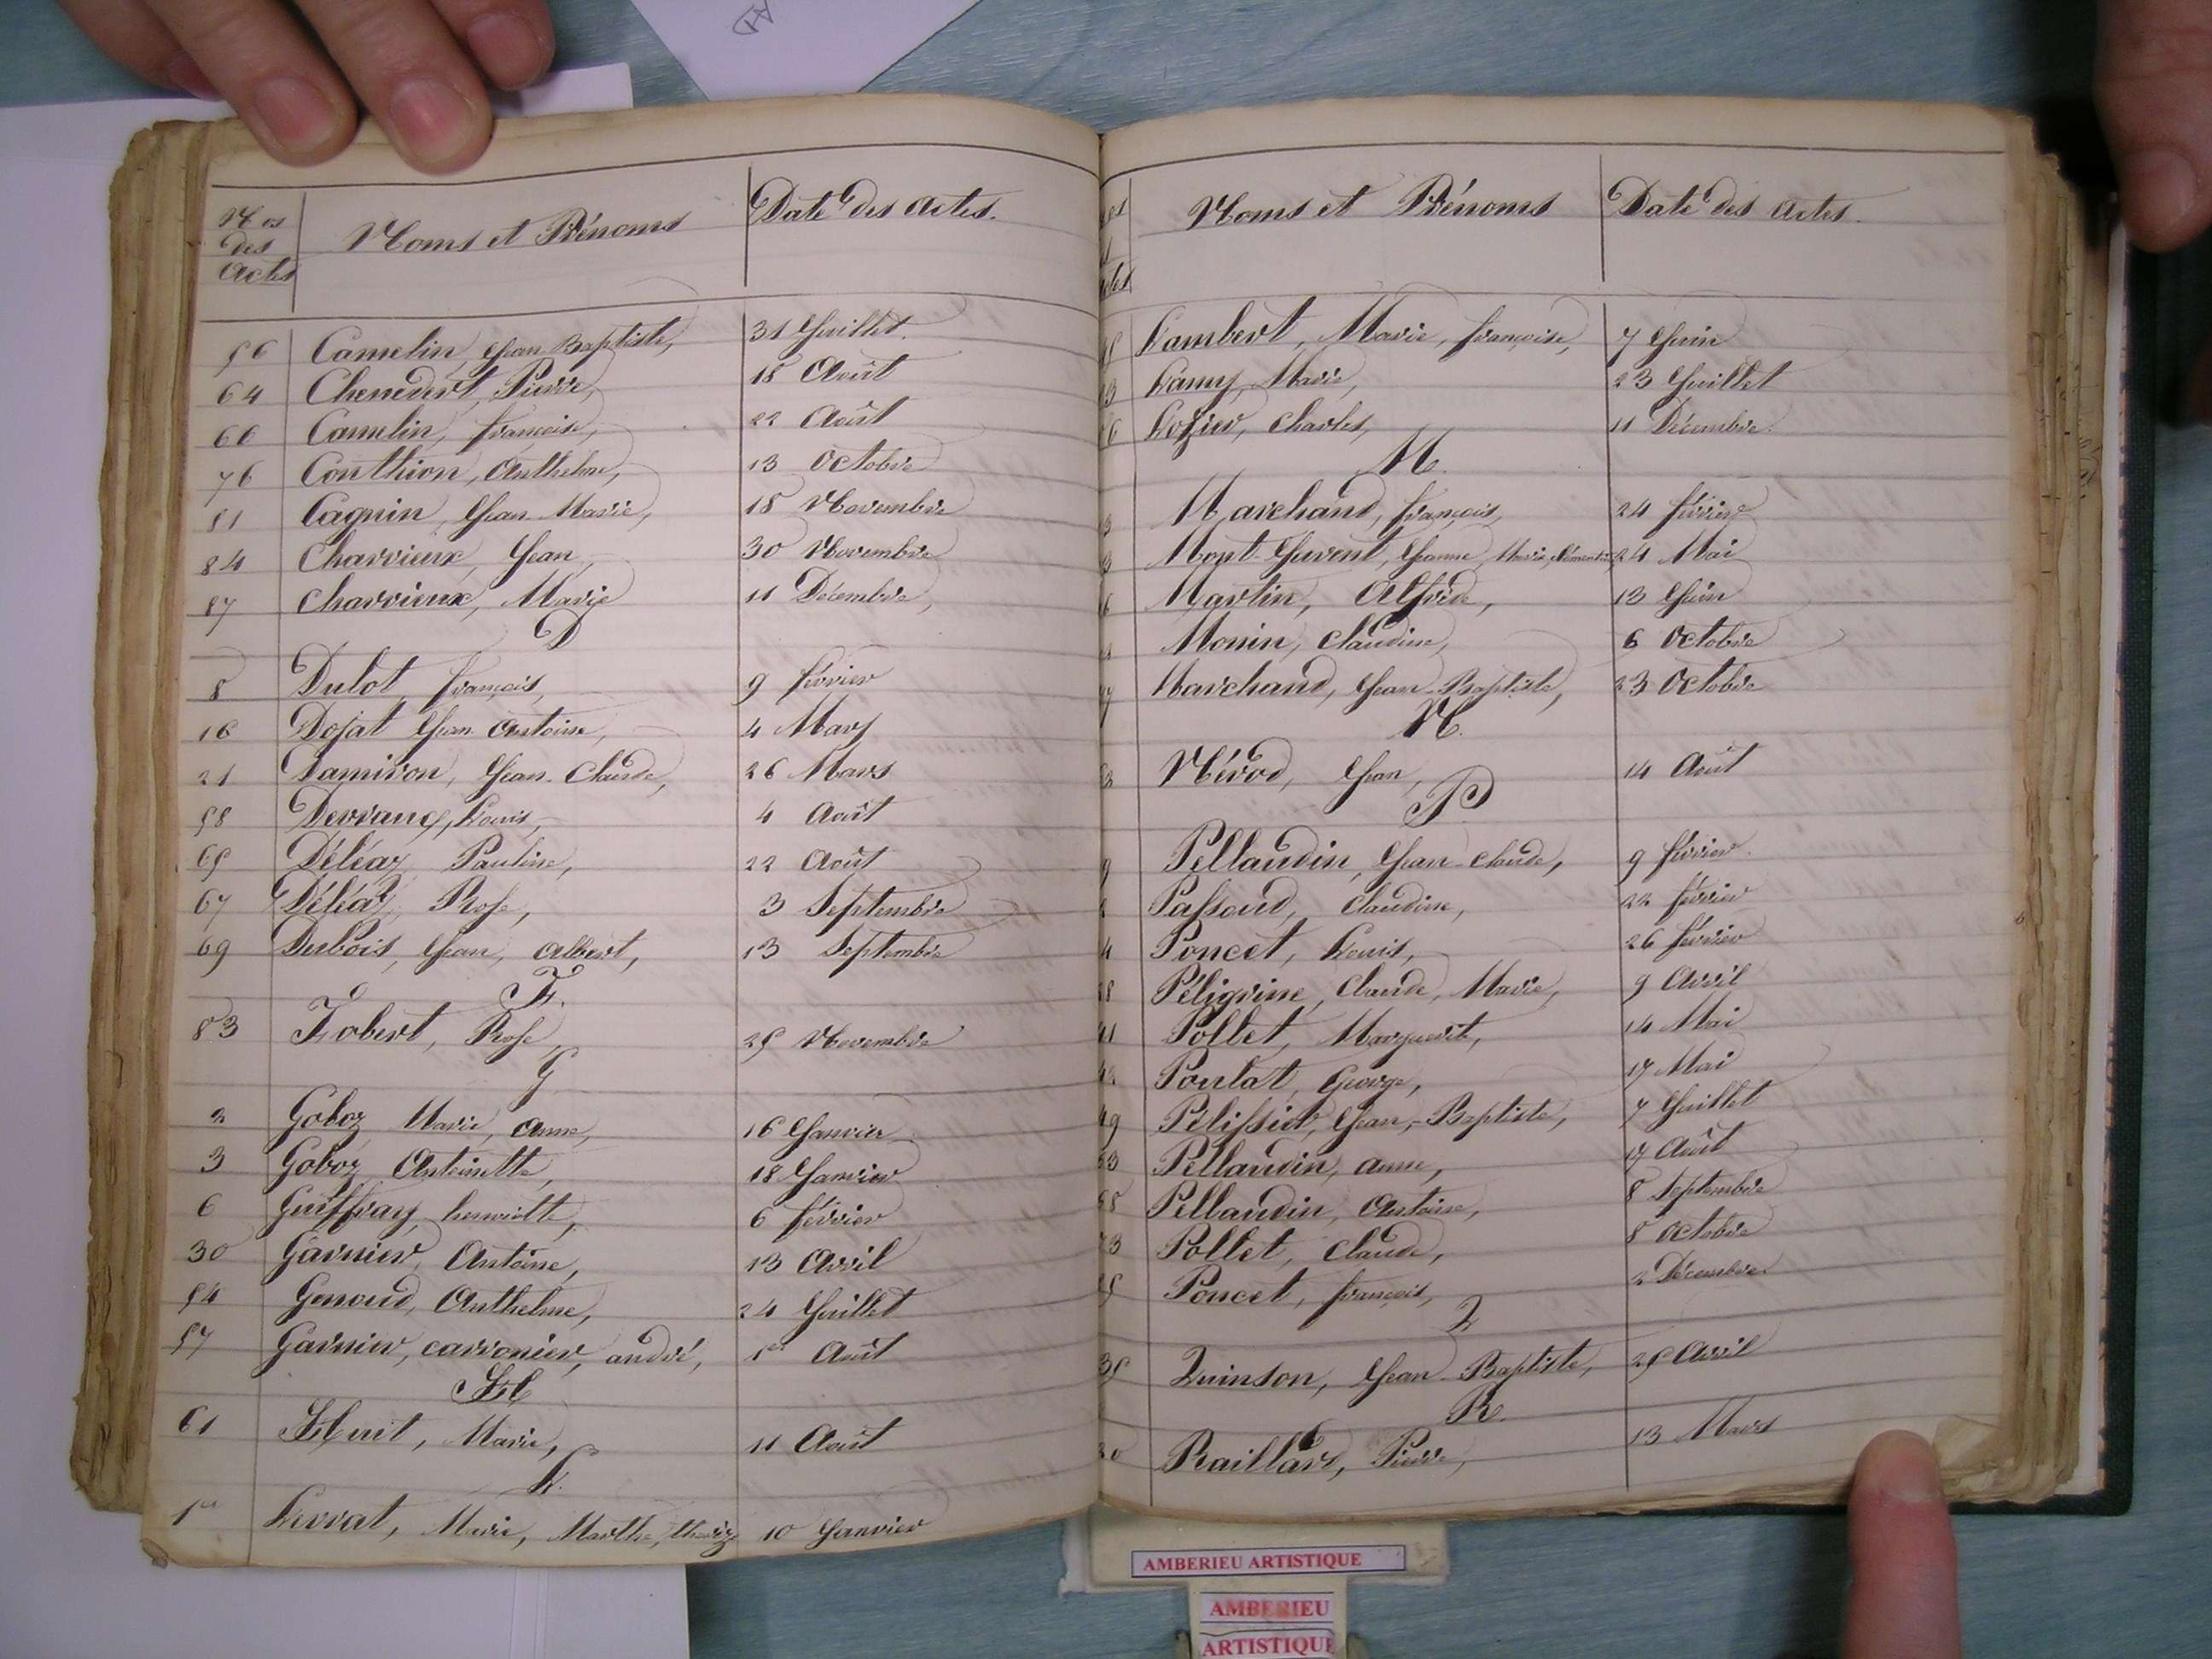 Nos
des
Actes
Noms et Prénoms
Date des Actes.
56 Camelin, Jean-Baptiste, 31 Juillet.
64 Chenedert, Pierre, 18 Août
66 Camelin, françoise, 22 Août
76 Conthion, Anthelme, 13 Octobre
81 Cagnin, Jean-Marie, 18 Novembre
84 Charvieux, Jean, 30 Novembre
87 Charvieux, Marie 11 Décembre,
D
8 Dulot, françois, 9 février
16 Dojat Jean Antoine, 4 Mars
21 Damiron, Jean-Claude, 26 Mars
58 Louis, 4 Août
65 Déléaz, Pauline, 22 Août
67 Déléaz, Rose, 3 Septembre
69 Dubois, Jean, Albert, 13 Septembre
F.
83 Fobert, Rose, 25 Novembre
G
2 Goboz Marie, Anne, 16 Janvier
3 Goboz Antoinette, 18 Janvier
6 Guiffray, henriette, 6 février
30 Garnier, Antoine, 13 Avril
54 Genoud, Anthelme, 24 Juillet
57 Garnier, carronier, andré, 1er Août
H
61 Huit, Marie, 11 Août
L.
1er Levrat, Marie, Marthe, 10 Janvier
Noms et Prénoms
Date des Actes.
Lambert, Marie, françoise, 7 Juin
Lamy, Marie, 23 Juillet
Lozier, Charles, 11 Décembre.
M.
Marchand, françois, 24 février
Mont-Juvent, Jeanne, Marie, 24 Mai
Martin, Alfred, 13 Juin
Monin, Claudine, 6 Octobre
Marchand, Jean-Baptiste, 23 Octobre
N.
Nérod, Jean, 14 Août
P.
9 Pellaudin, Jean-Claude, 9 février.
Passoud, Claudine, 22 février
Poncet, Louis, 26 février
Péligrine, Claude, Marie, 9 Avril
41 Pollet, Marguerite, 14 Mai
42 Pontat, George, 17 Mai
49 Pélissier, Jean-Baptiste, 7 Juillet
63 Pellaudin, anne, 17 Août
68 Pellaudin, Antoine, 8 Septembre
73 Pollet, Claude, 8 octobre
85 Poncet, françois, 2 Décembre.
Q
35 Quinson, Jean-Baptiste, 25 Avril
R.
20 Raillard, Pierre, 13 Mars
AMBERIEU ARTISTIQUE
AMBERIEU
ARTISTIQUE